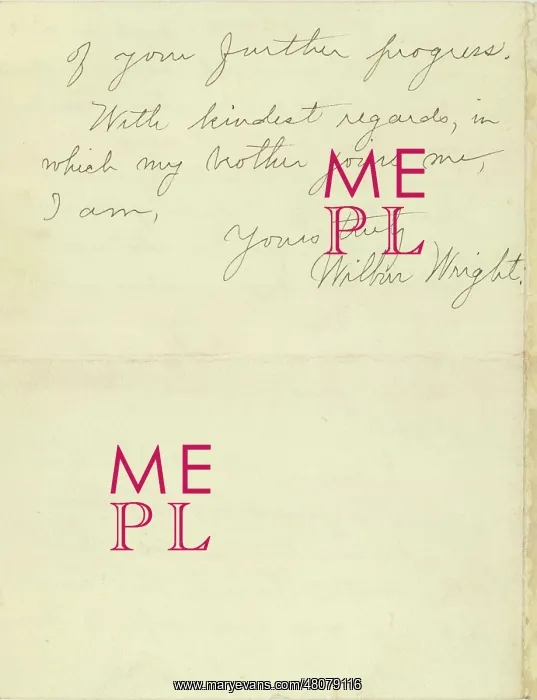 of your further progress.
With kindest regards, in
which my brother joins me,
I am,
Yours truly
Wilbur Wright.
ME
PL
ME
PL
www.maryevans.com/48079116